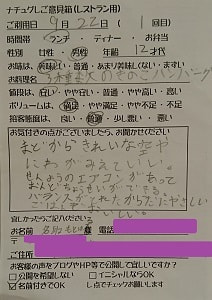 ナチュグしご意見箱(レストラン用)
ご利用日 9月22日 (1回目)
時間帯 ランチ・ディナー・お弁当
性別 女性・男性 年齢 12才代
お味は、美味しい・普通・美味しくない
お料理名
きのこハンバーグ
値段は、高い・やや高い・普通・やや安い・安い
ボリュームは、満足・やや満足・やや不足・不足
接客態度は、良い・普通・少し悪い・悪い
お気付きの点がございましたら、お聞かせください
まどからきれいな空や
にわがみえていい。
せんようのエアコンがあって
おんどちょうせいができる。
バランスがとれた、からだにやさしい
宜しかったらご記入ください
お名前 様 電話
ご住所
お客様の声をブログやHP等で公開して宜しいですか?
□公開を希望しない □イニシャルならOK
名前付きでOK し点でチェックお願いします